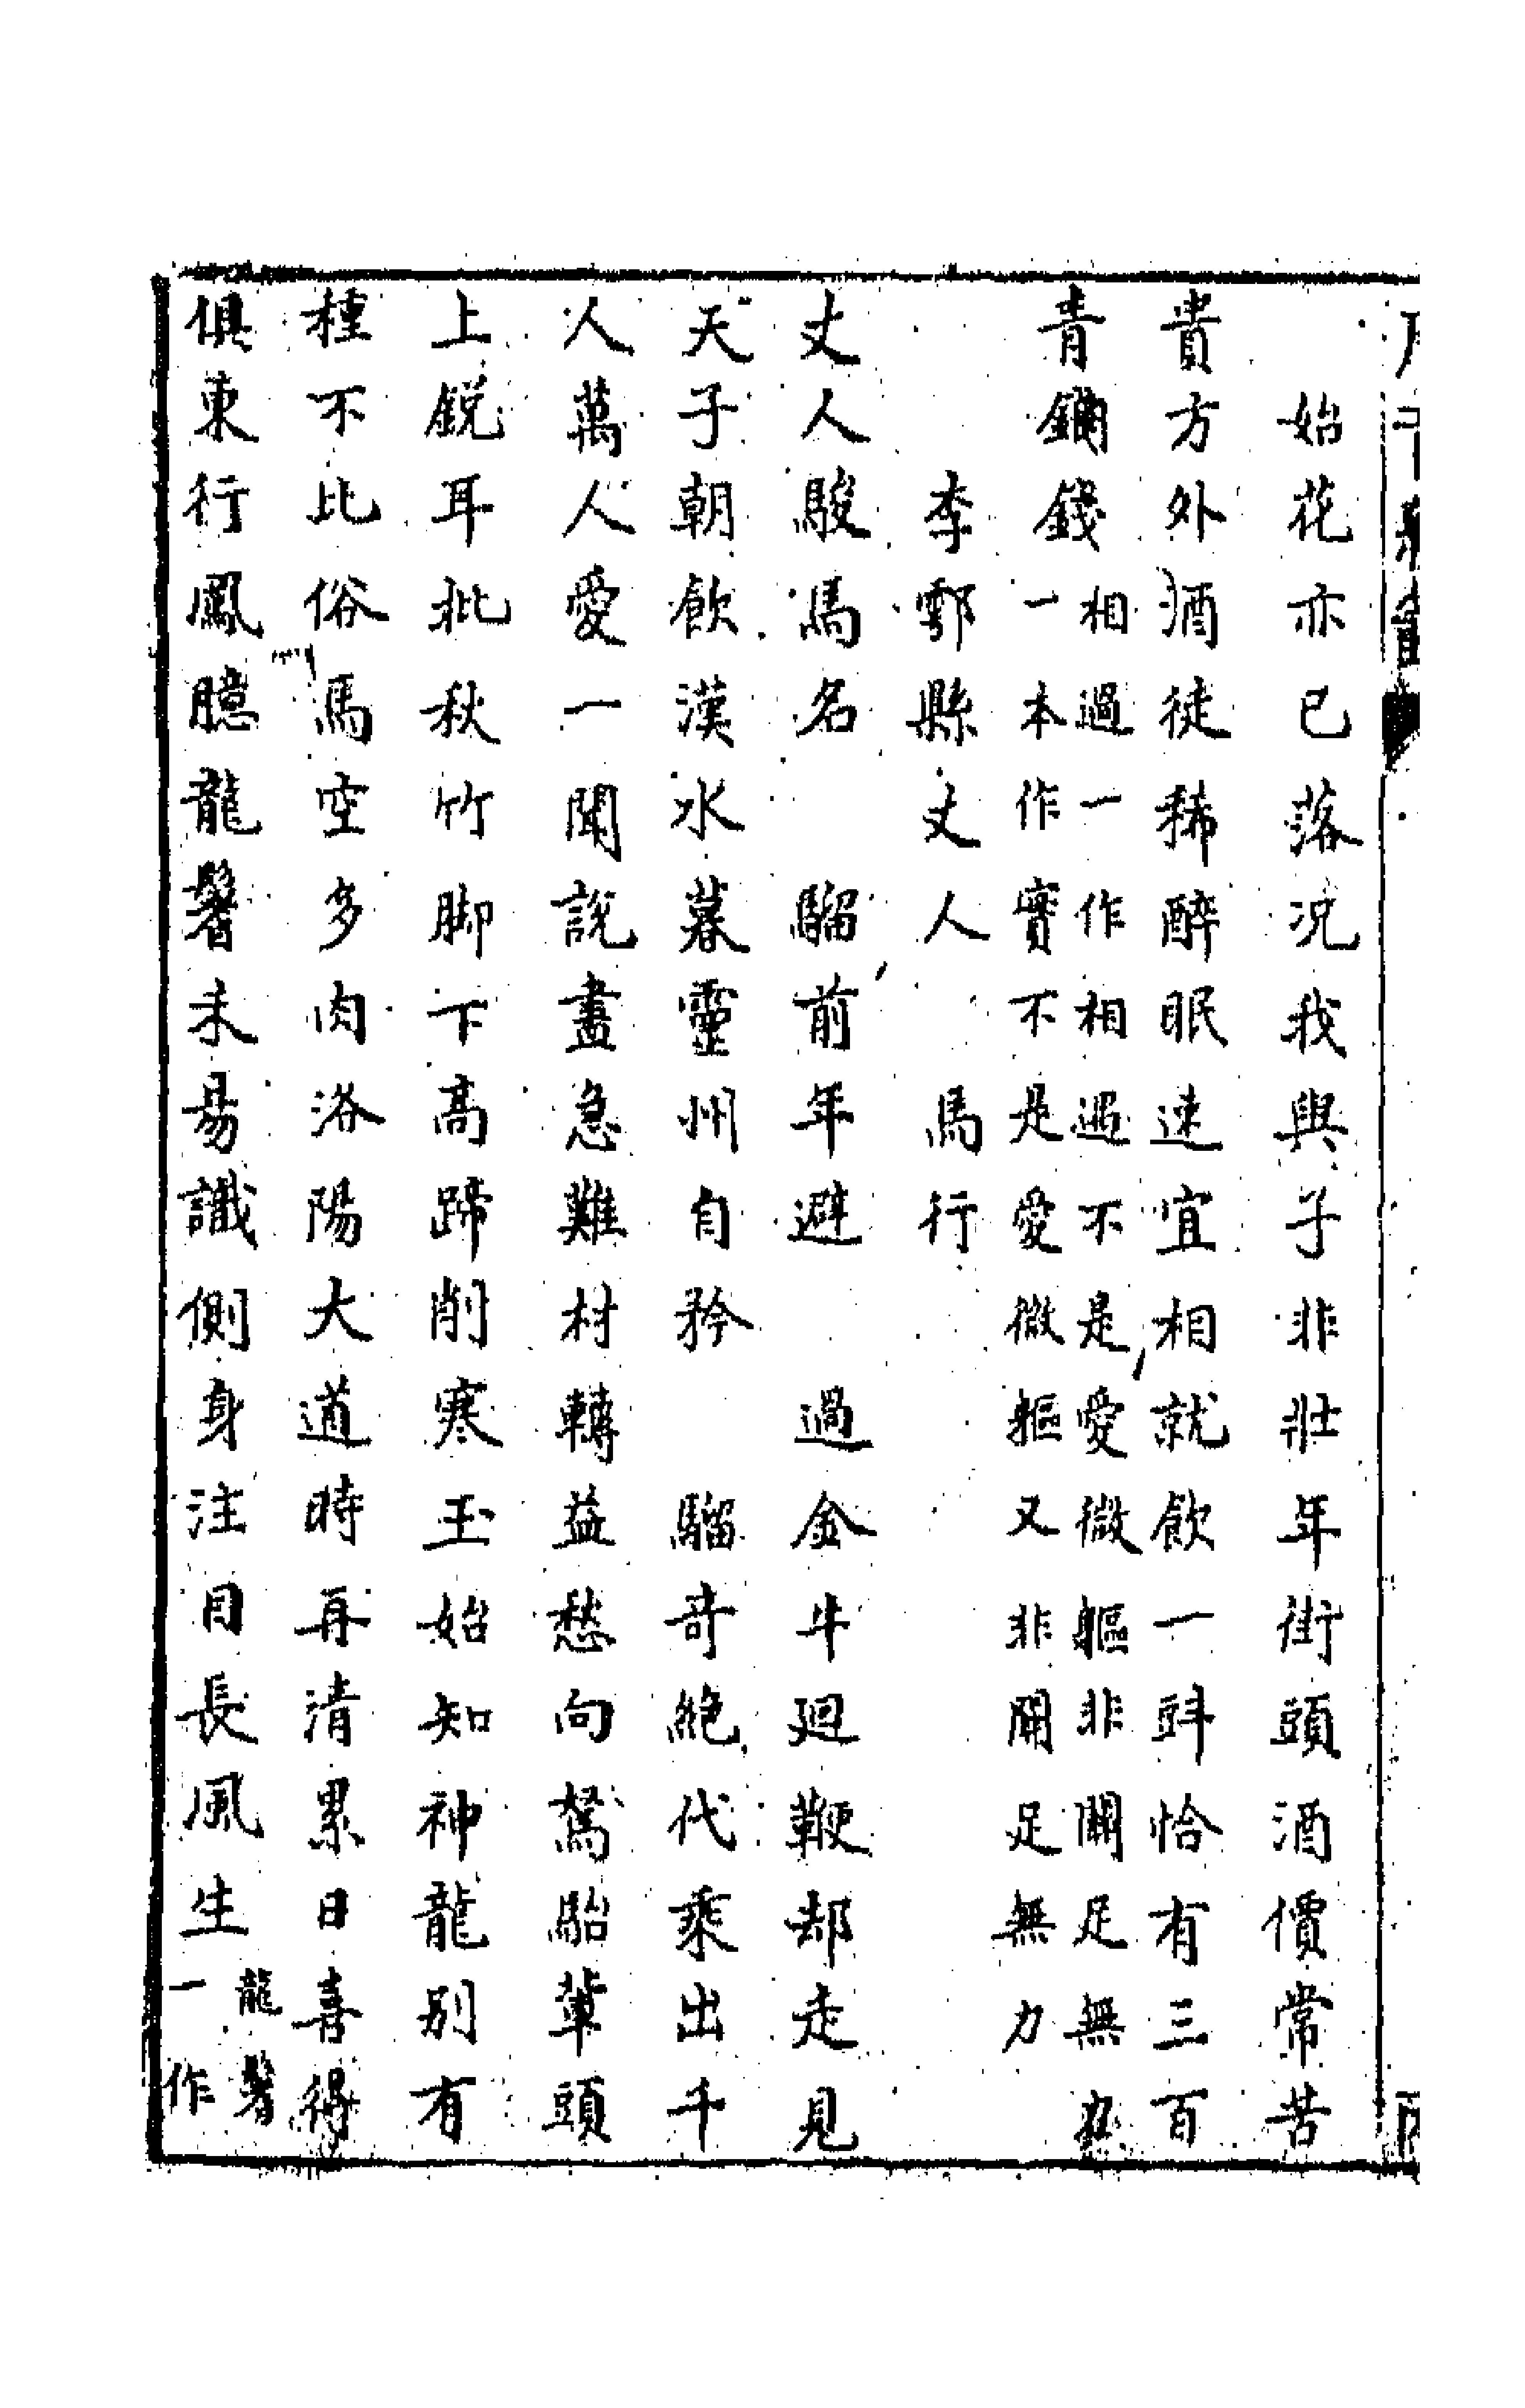 始花亦已落况我與子非壯年街頭酒價常苦
貴方外酒徒稀醉眠速宜相就飲一㪷恰有三百
青銅錢
相過一作相遇不是愛微軀非關足無力
一本作實不是愛微軀又非關足無力
李鄠縣丈人 馬行
丈人駿馬名 騮前年避 過金牛廻鞭却走見
天子朝飲漢水暮靈州自矜 騮奇絶代乘出千
人萬人愛一聞說盡急難材轉益愁向駑駘輩頭
上銳耳批秋竹脚下高蹄削寒玉始知神龍别有
種不比俗馬空多肉洛陽大道時再清累日喜得
俱東行鳳臆龍鬐未易識側身注目長風生
龍鬐
一作